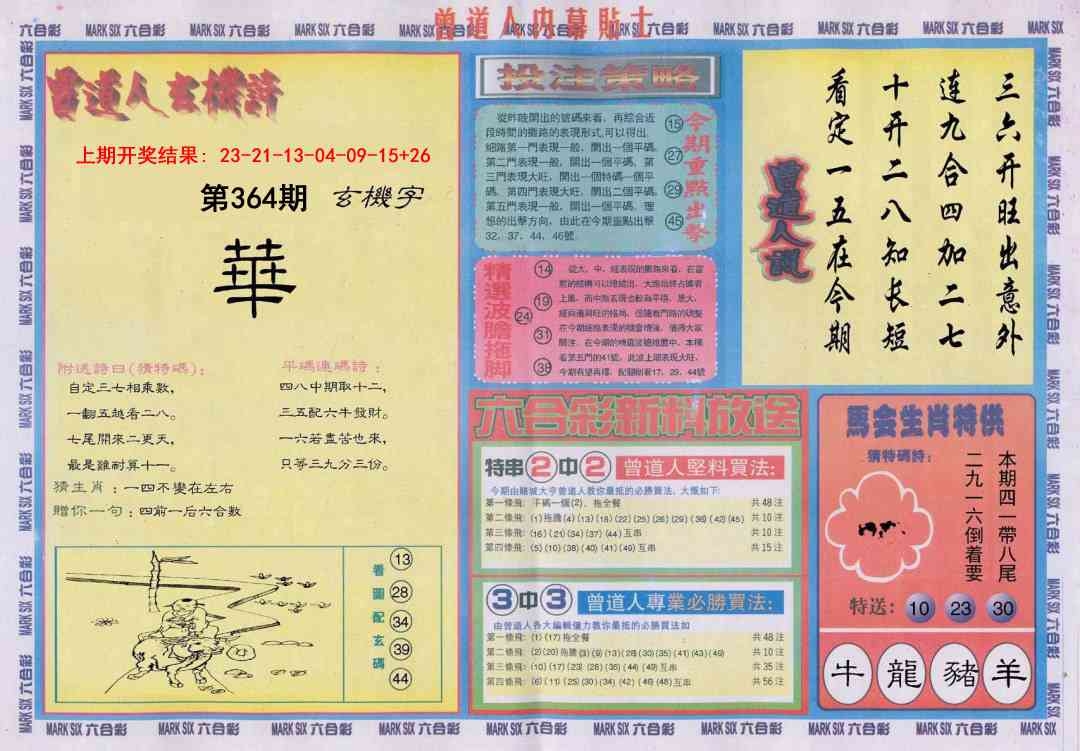 曾道人内幕貼士
六合彩 MARK SIX 六合彩 MARK SIX 六合彩 MARK SIX 六合彩 MARK SIX 六合彩 MARK SIX 六合彩 MARK SIX 六合彩 MARK SIX 六合彩 MARK SIX 六合彩 MARK SIX 六合彩 MARK SIX
曾道人玄機詩
上期开奖结果: 23-21-13-04-09-15+26
第364期 玄機字
華
附送詩曰(猜特碼):
自定三七相乘數,
一翻五越看二八。
七尾開來二更天,
最是難耐算十一。
平碼連碼詩:
四八中期取十二,
三五配六牛發財。
一六若盡苦也來,
只等三九分三份。
猜生肖:一四不變在左右
贈你一句:四前一后六合數
看圖配玄碼
13
28
34
39
44
投注策略
今期重點出擊
15
27
29
45
從昨晚開出的號碼來看,再綜合近
段時間的攤路的表現形式,可以得出.
細踏第一門表現一般,開出一個平碼.
第二門表現一般,開出一個平碼.第
三門表現大旺,開出一個特碼一個平
碼.第四門表現大旺,開出二個平碼.
第五門表現一般,開出一個平碼.理
想的出擊方向,由此在今期重點出擊
32、37、44、46號.
精選波膽拖脚
14
19
24
31
38
今期有望再爆、配膽腳看17、29、44號
曾道人說
三六开旺出意外
连九合四加二七
十开二八知长短
看定一五在今期
六合彩新料放送
特串2中2 曾道人堅料買法:
今期由賭城大亨曾道人教你最抵的必勝買法、大概如下:
第一條飛: 平碼一個(2)、拖全餐 共48注
第二條飛: (1)拖膽(4)(13)(18)(22)(25)(26)(29)(36)(42)(45) 共10注
第三條飛: (16)(21)(34)(37)(44)互串 共10注
第四條飛: (5)(10)(38)(40)(41)(49)互串 共15注
3中3 曾道人專業必勝買法:
由曾道人各大編輯傾力教你最抵的必勝買法如
第一條飛: (1)(17)拖全餐 共48注
第二條飛: (2)(20)拖膽(3)(9)(13)(28)(30)(35)(41)(43)(49) 共10注
第三條飛: (10)(17)(23)(28)(36)(44)(49)互串 共35注
第四條飛: (6)(11)(25)(30)(34)(42)(46)(48)互串 共56注
馬会生肖特供
猜特碼詩:
本期四一帶八尾
二九一六倒着要
特送: 10 23 30
牛 龍 豬 羊
MARK SIX 六合彩 MARK SIX 六合彩 MARK SIX 六合彩 MARK SIX 六合彩 MARK SIX 六合彩 MARK SIX 六合彩 MARK SIX 六合彩 MARK SIX 六合彩 MARK SIX 六合彩 MARK SIX